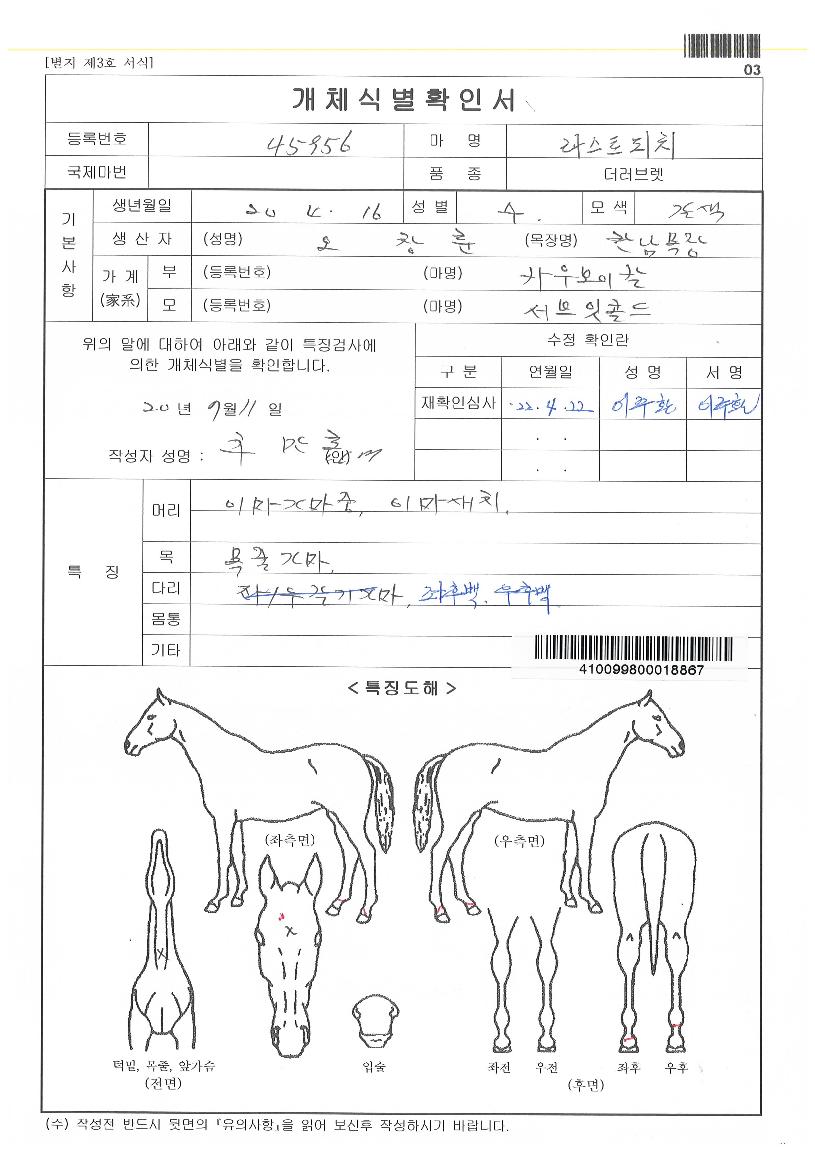 [별지 제3호 서식]
03
개체식별확인서
등록번호 45956 마 명 라스트피치
국제마번 품 종 더러브렛
기본사항
생년월일 20 4. 16 성 별 수. 모 색 갈색
생 산 자 (성명) 오 창 훈 (목장명) 한남목장
가 계 (家系) 부 (등록번호) (마명) 카우보이칼
모 (등록번호) (마명) 서브잇골드
위의 말에 대하여 아래와 같이 특징검사에
의한 개체식별을 확인합니다.
20년 9월 11일
작성자 성명 : (인)
수정 확인란
구 분 연월일 성 명 서 명
재확인심사 '22.4.22
. .
. .
특 징
머리 이마가마중, 이마세치.
목 목줄가마.
다리 좌후백. 우후백
몸통
기타
410099800018867
<특징도해>
(좌측면) (우측면)
턱밑, 목줄, 앞가슴 입술 좌전 우전 좌후 우후
(전면) (후면)
(수) 작성전 반드시 뒷면의 『유의사항』을 읽어 보신후 작성하시기 바랍니다.